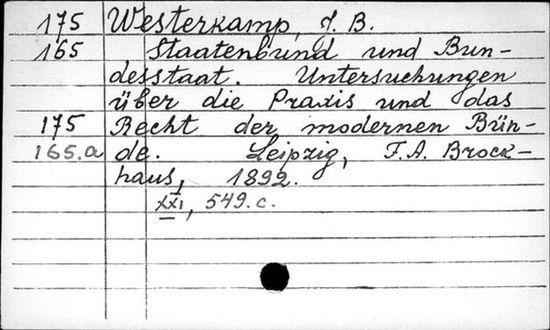 175 Westerkamp, J. B.
165 Staatenbund und Bun-
desstaat. Untersuchungen
über die Praxis und das
175 Recht der modernen Bün-
165.a de. Leipzig, F. A. Brock-
haus, 1892.
XXI, 549 . c.